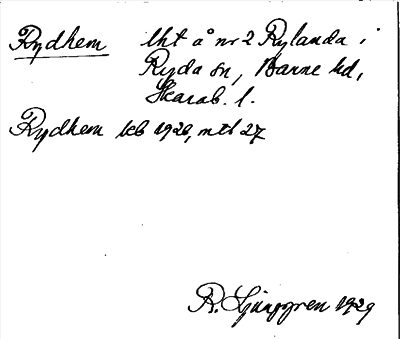 Rydhem lht å nr 2 Rylanda i
Ryda sn, Barne hd,
Skarab. l.
Rydhem kb 1920, mtl 27
R. Ljunggren 1929